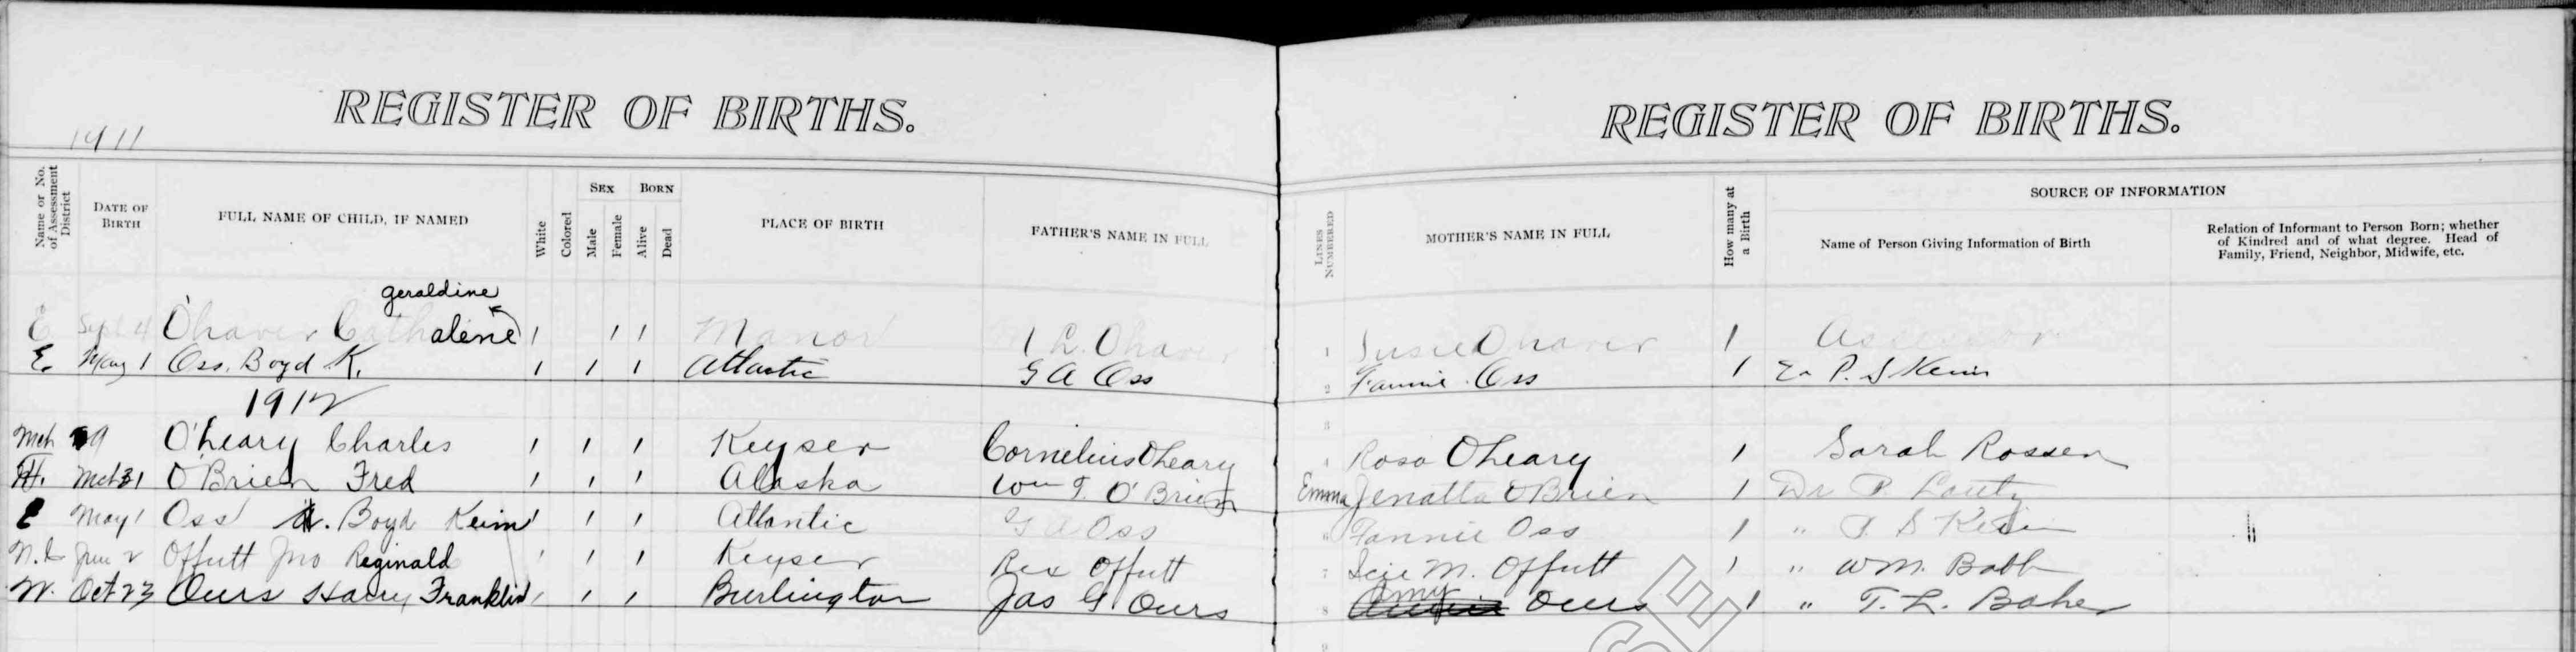 REGISTER OF BIRTHS. REGISTER OF BIRTHS.
1911
Name or No. of Assessment District
DATE OF BIRTH
FULL NAME OF CHILD, IF NAMED
White
Colored
SEX
Male
Female
BORN
Alive
Dead
PLACE OF BIRTH
FATHER'S NAME IN FULL
LINES NUMBERED
MOTHER'S NAME IN FULL
How many at a Birth
SOURCE OF INFORMATION
Name of Person Giving Information of Birth
Relation of Informant to Person Born; whether
of Kindred and of what degree. Head of
Family, Friend, Neighbor, Midwife, etc.
geraldine
E Sept 4 O'haver Cathalene 1 1 1 Manor L. Ohaver 1 Susie Ohaver 1 Assessor
E. May 1 Oss, Boyd K. 1 1 1 Atlantic G A Oss 2 Fannie Oss 1 P. S Keim
1912 3
Mch 9 O'Leary Charles 1 1 1 Keyser Cornelius OLeary 4 Rosa OLeary 1 Sarah Rossen
Mch 31 O'Brien Fred 1 1 1 Alaska Wm T. O'Brien Emma Jenatta O'Brien 1 Dr P. Lantz
E May 1 Oss Boyd Keim 1 1 1 Atlantic G A Oss 6 Fannie Oss 1 " P. S Keim "
Jun 2 Offutt Jno Reginald 1 1 1 Keyser Rex Offutt 7 M. Offutt 1 " W M. Babb
W. Oct 23 Ours Harry Franklin 1 1 1 Burlington Jas G. Ours 8 Amy Ours 1 " T. L. Baker
9
SE